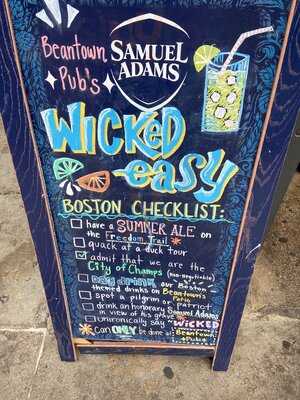 Beantown
Pub's
SAMUEL
ADAMS
WICKED
easy
BOSTON CHECKLIST:
have a SUMMER ALE on
the Freedom Trail
quack at a duck tour
admit that we are the
City of Champs (non-negotiable)
day drink our Boston
themed drinks on Beantown's
Patio
spot a pilgrim or patriot
drink an honorary Samuel Adams
in view of his grave
unironically say "WICKED"
Can ONLY be done at Beantown
Pub